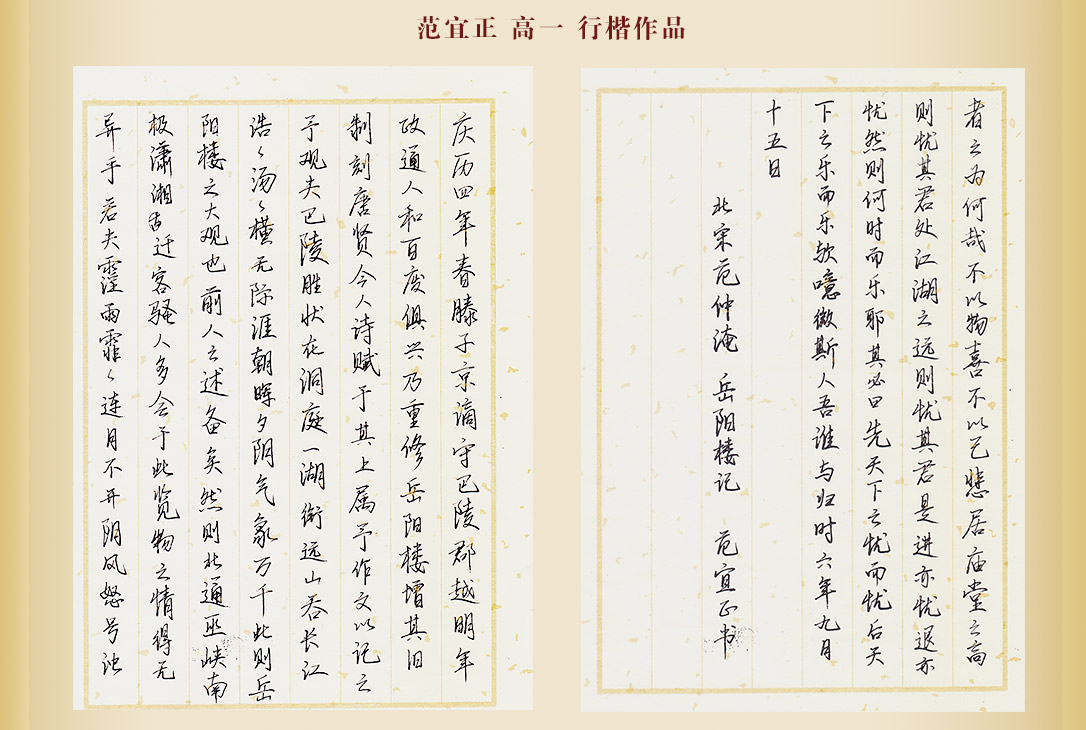 范宜正 高一 行楷作品
庆历四年春滕子京谪守巴陵郡越明年
政通人和百废俱兴乃重修岳阳楼增其旧
制刻唐贤今人诗赋于其上属予作文以记之
予观夫巴陵胜状在洞庭一湖衔远山吞长江
浩〻汤〻横无际涯朝晖夕阴气象万千此则岳
阳楼之大观也前人之述备矣然则北通巫峡南
极潇湘迁客骚人多会于此览物之情得无
异乎若夫霪雨霏〻连月不开阴风怒号浊
者之为何哉不以物喜不以己悲居庙堂之高
则忧其君处江湖之远则忧其君是进亦忧退亦
忧然则何时而乐耶其必曰先天下之忧而忧后天
下之乐而乐欤噫微斯人吾谁与归时六年九月
十五日
北宋范仲淹 岳阳楼记 范宜正书